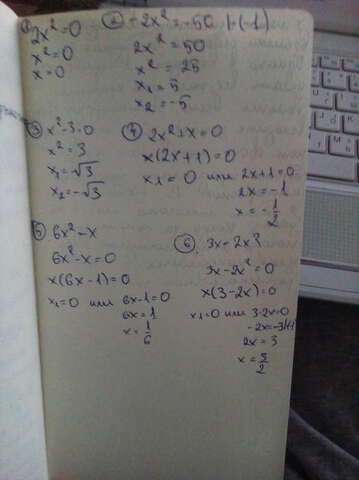 ① 2x² = 0
x² = 0
x = 0
② -2x² = -50 |·(-1)
2x² = 50
x² = 25
x₁ = 5
x₂ = -5
③ x² - 3 = 0
x² = 3
x₁ = √3
x₂ = -√3
④ 2x² + x = 0
x(2x + 1) = 0
x₁ = 0 или 2x + 1 = 0
2x = -1
x = -1/2
⑤ 6x² - x
6x² - x = 0
x(6x - 1) = 0
x₁ = 0 или 6x - 1 = 0
6x = 1
x = 1/6
⑥ 3x = 2x²
3x - 2x² = 0
x(3 - 2x) = 0
x₁ = 0 или 3 - 2x = 0
-2x = -3
2x = 3
x = 3/2